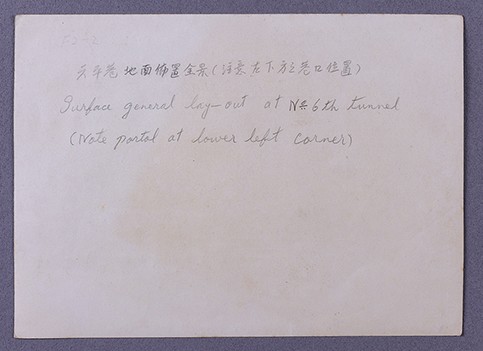 六平巷地面佈置全景(注意左下方之巷口位置)
Surface general lay-out at No 6th tunnel
(Note portal at lower left corner)